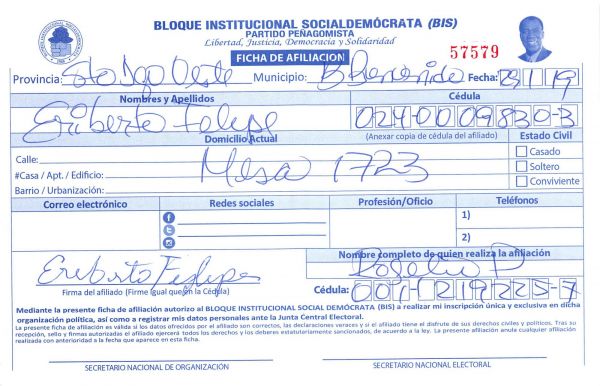 BLOQUE INSTITUCIONAL SOCIALDEMÓCRATA (BIS)
PARTIDO PEÑAGOMISTA
Libertad, Justicia, Democracia y Solidaridad
FICHA DE AFILIACION
57579
Provincia: Sto Dgo Oeste Municipio: Fecha: /19
Nombres y Apellidos Cédula
Eriberto Felipe 024-0009830-3
Domicilio Actual (Anexar copia de cédula del afiliado) Estado Civil
Calle: Mesa 1723 Casado
#Casa / Apt. / Edificio: Soltero
Barrio / Urbanización: Conviviente
Correo electrónico Redes sociales Profesión/Oficio Teléfonos
1)
2)
Nombre completo de quien realiza la afiliación
Eriberto Felipe Rogelio P
Firma del afiliado (Firme igual que en la Cédula) Cédula:
Mediante la presente ficha de afiliación autorizo al BLOQUE INSTITUCIONAL SOCIAL DEMÓCRATA (BIS) a realizar mi inscripción única y exclusiva en dicha
organización política, así como a registrar mis datos personales ante la Junta Central Electoral.
La presente ficha de afiliación es válida si los datos ofrecidos por el afiliado son correctos, las declaraciones veraces y si el afiliado tiene el disfrute de sus derechos civiles y políticos. Tras su
recepción, sello y firmas autorizadas el afiliado ejercerá todos los derechos y los deberes estatutariamente sancionados, de acuerdo a la ley. La presente afiliación anula cualquier afiliación
realizada con anterioridad a la fecha que aparece en esta ficha.
SECRETARIO NACIONAL DE ORGANIZACIÓN SECRETARIO NACIONAL ELECTORAL